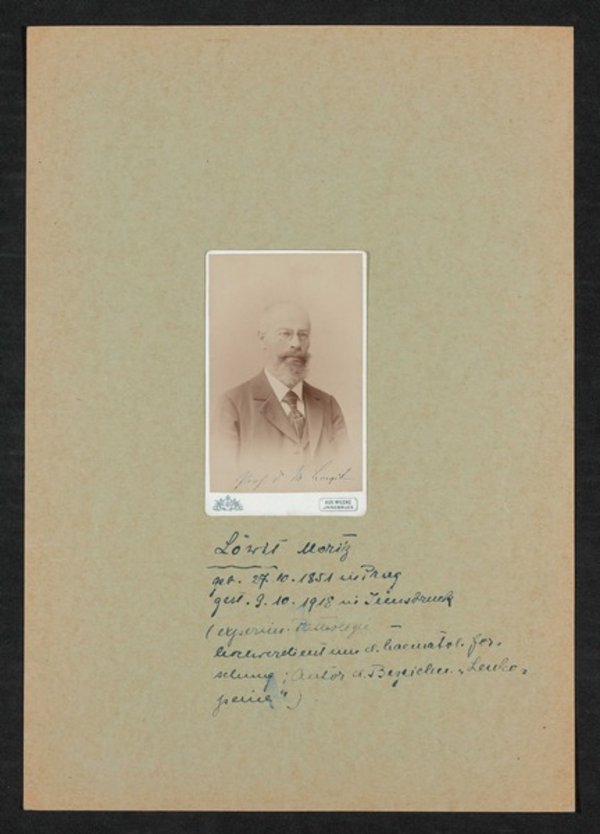 Prof. Dr. M. Löwit
AUG. WILCKE
INNSBRUCK
Löwit Moritz
geb. 27. 10. 1851 in Prag
gest. 9. 10. 1918 in Innsbruck
(experim. Pathologie
hochverdient um d. haematol. For-
schung; Autor d. Bezeichn. „Leuko-
penie")